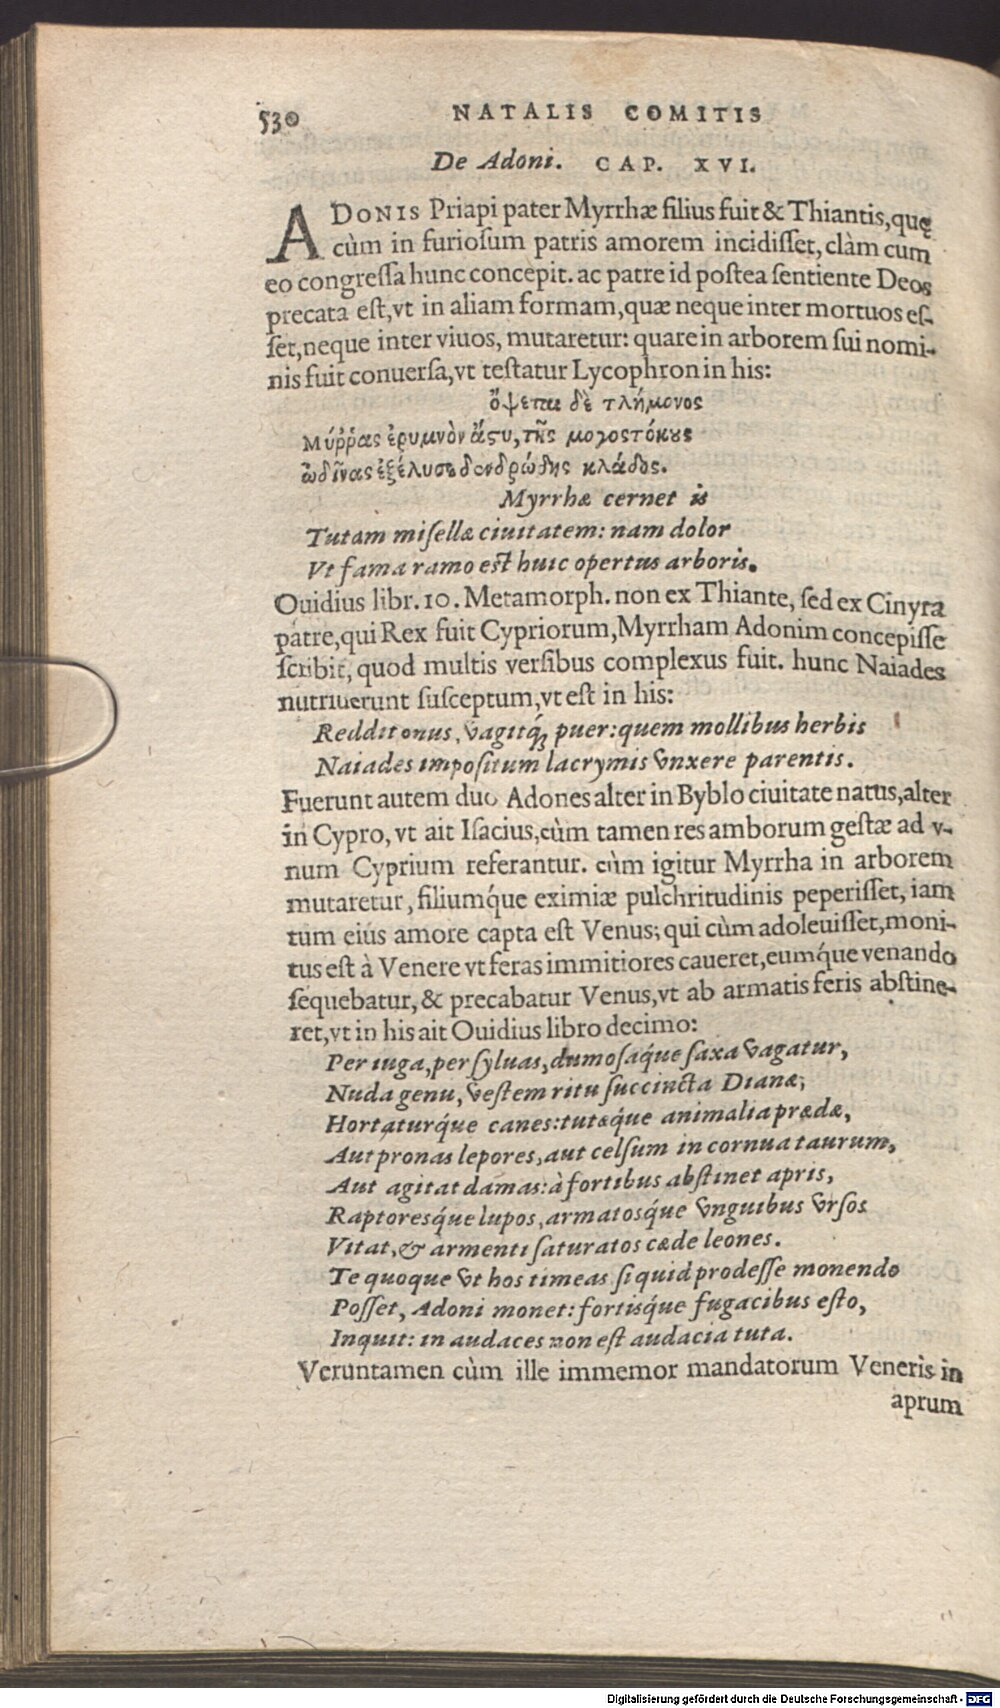 530 NATALIS COMITIS
De Adoni. CAP. XVI.
ADONIS Priapi pater Myrrhæ filius fuit & Thiantis, quę
cùm in furiosum patris amorem incidisset, clàm cum
eo congressa hunc concepit. ac patre id postea sentiente Deos
precata est, vt in aliam formam, quæ neque inter mortuos es-
set, neque inter viuos, mutaretur: quare in arborem sui nomi-
nis fuit conuersa, vt testatur Lycophron in his:
ὄψεται δὲ τλήμονος
Μύῤῥας ἐρυμνὸν ἄστυ, τῆς μογοστόκους
ὠδῖνας ἐξέλυσε δενδρώδης κλάδος.
Myrrhæ cernet is
Tutam misellæ ciuitatem: nam dolor
Vt fama ramo est huic opertus arboris.
Ouidius libr. 10. Metamorph. non ex Thiante, sed ex Cinyra
patre, qui Rex fuit Cypriorum, Myrrham Adonim concepisse
scribit, quod multis versibus complexus fuit. hunc Naiades
nutriuerunt susceptum, vt est in his:
Reddit onus, vagitq́; puer: quem mollibus herbis
Naiades impositum lacrymis vnxere parentis.
Fuerunt autem duo Adones alter in Byblo ciuitate natus, alter
in Cypro, vt ait Isacius, cùm tamen res amborum gestæ ad v-
num Cyprium referantur. cùm igitur Myrrha in arborem
mutaretur, filiumq́ue eximiæ pulchritudinis peperisset, iam
tum eius amore capta est Venus; qui cùm adoleuisset, moni-
tus est à Venere vt feras immitiores caueret, eumq́ue venando
sequebatur, & precabatur Venus, vt ab armatis feris abstine-
ret, vt in his ait Ouidius libro decimo:
Per iuga, per syluas, dumosaq́ue saxa vagatur,
Nuda genu, vestem ritu succincta Dianæ;
Hortaturq́ue canes: tutæq́ue animalia prædæ,
Aut pronas lepores, aut celsum in cornua taurum,
Aut agitat damas: à fortibus abstinet apris,
Raptoresq́ue lupos, armatosq́ue vnguibus vrsos
Vitat, & armenti saturatos cæde leones.
Te quoque vt hos timeas si quid prodesse monendo
Posset, Adoni monet: fortisq́ue fugacibus esto,
Inquit: in audaces non est audacia tuta.
Veruntamen cùm ille immemor mandatorum Veneris in
aprum
Digitalisierung gefördert durch die Deutsche Forschungsgemeinschaft - DFG